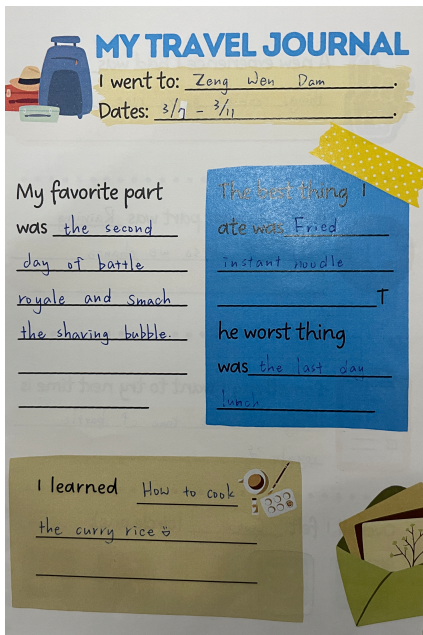 MY TRAVEL JOURNAL
I went to: Zeng Wen Dam.
Dates: 3/7 - 3/11.
My favorite part
was the second
day of battle
royale and smach
the shaving bubble.
The best thing I
ate was Fried
instant noudle
T
he worst thing
was the last day
lunch
I learned How to cook
the curry rice